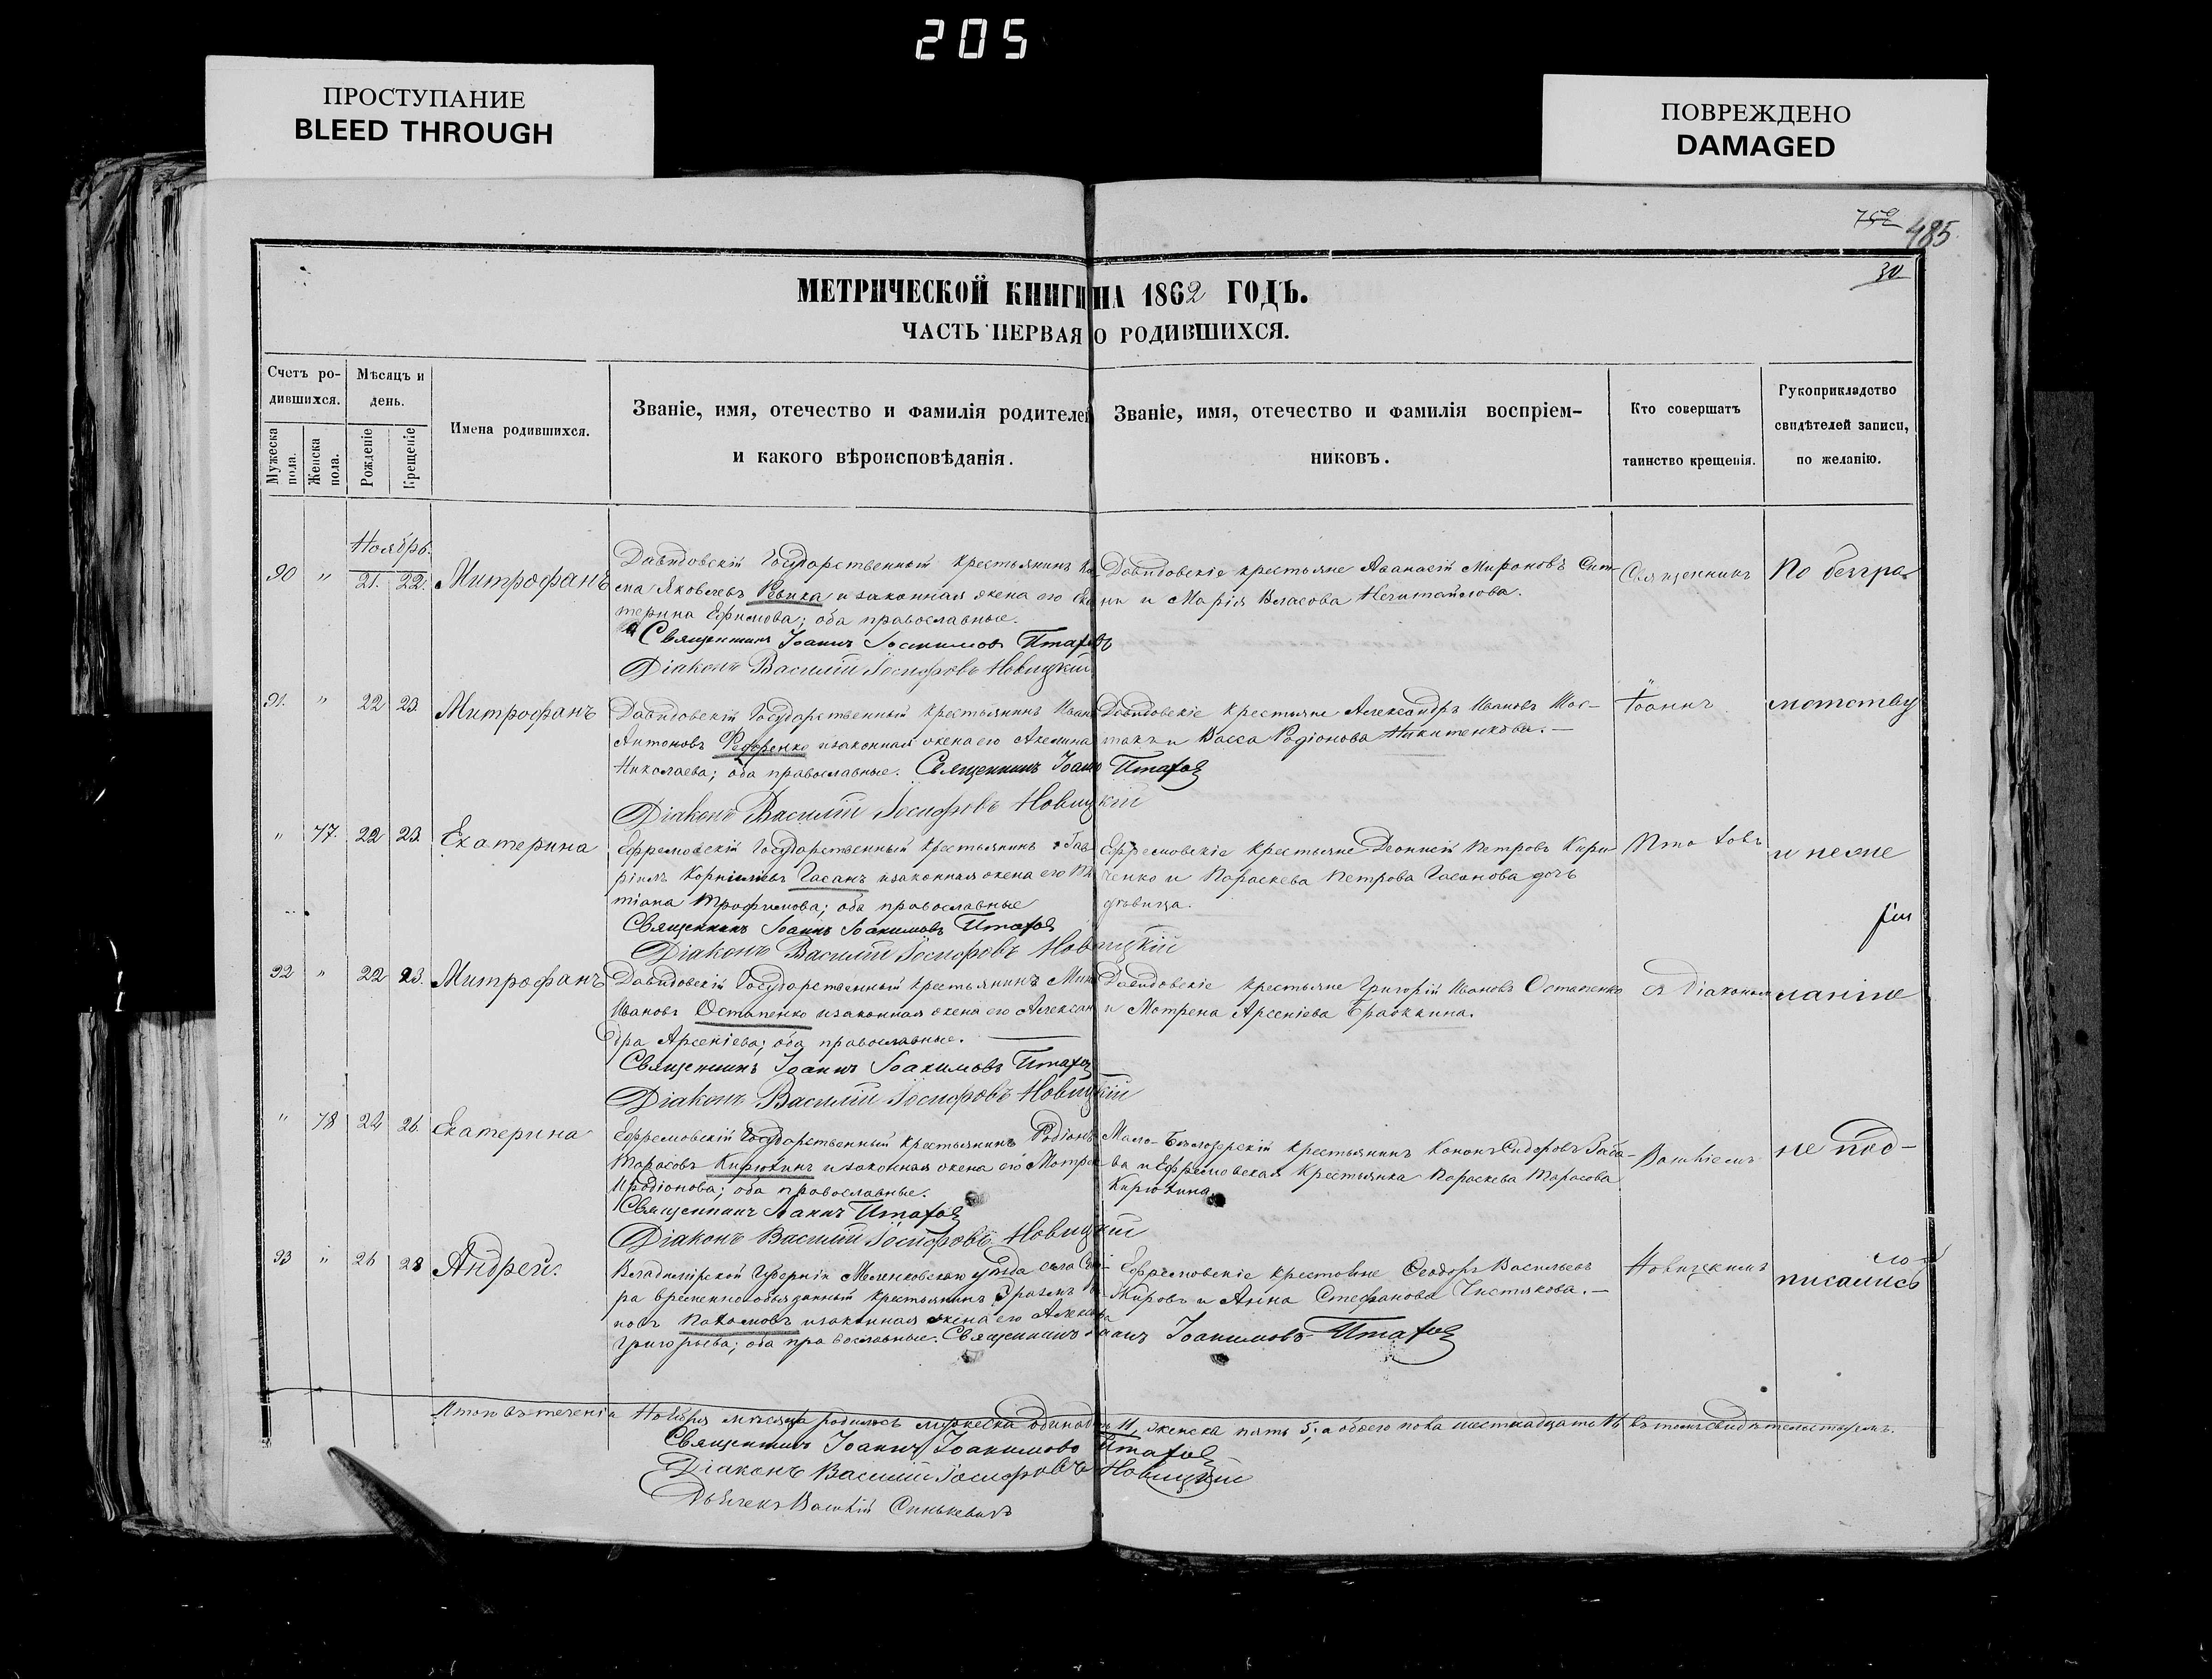 205
ПРОСТУПАНИЕ
BLEED THROUGH
ПОВРЕЖДЕНО
DAMAGED
485
30
МЕТРИЧЕСКОЙ КНИГИ НА 1862 ГОДЪ.
ЧАСТЬ ПЕРВАЯ О РОДИВШИХСЯ.
Счетъ ро-
дившихся.
Мужеска пола.
Женска пола.
Мѣсяцъ и
день.
Рожденіе
Крещеніе
Имена родившихся.
Званіе, имя, отечество и фамилія родителей
и какого вѣроисповѣданія.
Званіе, имя, отечество и фамилія воспріем-
никовъ.
Кто совершатъ
таинство крещенія.
Рукоприкладство
свидѣтелей записи,
по желанію.
Ноябрь.
90 " 21. 22. Митрофанъ
Давидовскій Государственный крестьянинъ
Яковлевъ Ревика и законная жена его Ека
терина Ефимова; оба православные.
Священникъ Іоаннъ Іоакимовъ Птаховъ
Діаконъ Василій Іосифовъ Новицкій
Давидовскіе крестьяне Аѳанасій Мироновъ
и Марія Власова Нечитайлова.
Священникъ
По безгра-
91. " 22 23. Митрофанъ
Давидовскій Государственный крестьянинъ Иванъ
Антоновъ Федоренко и законная жена его Акелина
Николаева; оба православные. Священникъ Іоаннъ Птаховъ
Діаконъ Василій Іосифовъ Новицкій
Давидовскіе крестьяне Александръ Ивановъ Шос-
такъ и Васса Родіонова Никитенкова.
Іоаннъ
мотству
" 77. 22 23. Екатерина
Ефремовскій Государственный крестьянинъ Гав
ріилъ Корниліевъ Гасанъ и законная жена его Та
тіана Трофимова; оба православные
Священникъ Іоаннъ Іоакимовъ Птаховъ
Діаконъ Василій Іосифовъ Новицкій
Ефремовскіе крестьяне Деонисій Петровъ Кири
ченко и Параскева Петрова Гасанова дочь
дѣвица.
Птаховъ
и неяме
92 " 22 23. Митрофанъ
Давидовскій Государственный крестьянинъ
Ивановъ Остапенко и законная жена его Алексан
дра Арсеніева; оба православные.
Священникъ Іоаннъ Іоакимовъ Птаховъ
Діаконъ Василій Іосифовъ Новицкій
Давидовскіе крестьяне Григорій Ивановъ Остапенко
и Мотрена Арсеніева
съ Діакономъ
" 78 24 26. Екатерина
Ефремовскій Государственный крестьянинъ Родіонъ
Тарасовъ Кирюхинъ и законная жена его Мотрен
Иродіонова; оба православные.
Священникъ Іоаннъ Птаховъ
Діаконъ Василій Іосифовъ Новицкій
Мало-Бѣлозерскій крестьянинъ Кононъ Сидоровъ
ва и Ефремовская крестьянка Параскева Тарасова
Кирюхина.
Василіемъ
не под-
93 " 26 28 Андрей.
Владимірской Губерніи Меленковскаго уѣзда села
ра временнообязанный крестьянинъ
Пахомовъ и законная жена его Александра
Григорьева; оба православные. Священникъ Іоаннъ Іоакимовъ Птаховъ
Ефремовскіе крестьяне Ѳеодоръ Васильевъ
Жировъ и Анна Стефанова Чистякова.
Новицкимъ
писались
Итого въ теченіи Ноября мѣсяца родилось мужеска одинадцать 11, женска пять 5; а обоего пола шестнадцать 16 въ томъ свидѣтельствуемъ.
Священникъ Іоаннъ Іоакимовъ Птаховъ
Діаконъ Василій Іосифовъ Новицкій
Дьячекъ Василій Синькевичъ